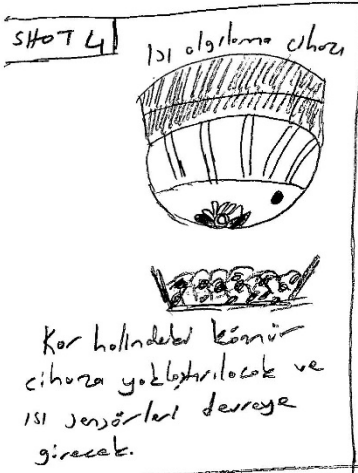 SHOT 4
Isı algılama cihazı
Kor halindeki kömür
cihaza yaklaştırılacak ve
ısı sensörleri devreye
girecek.